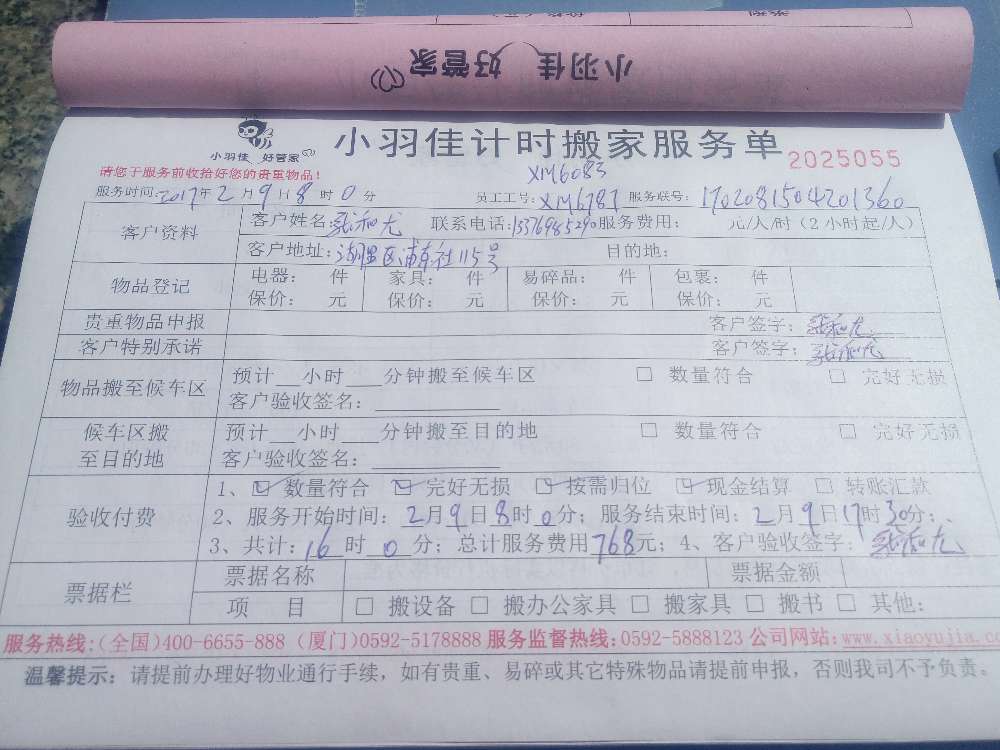 小羽佳 好管家
小羽佳 好管家
小羽佳计时搬家服务单
2025055
请您于服务前收拾好您的贵重物品！
XM6083
服务时间：2017年2月9日8时0分 员工工号：XM6787 服务联号：1702081504201360
客户资料
客户姓名： 联系电话：13376985290 服务费用： 元/人/时（2小时起/人）
客户地址：湖里区浦东社115号 目的地：
物品登记
电器： 件 家具： 件 易碎品： 件 包裹： 件
保价： 元 保价： 元 保价： 元 保价： 元
贵重物品申报 客户签字：
客户特别承诺 客户签字：
物品搬至候车区
预计__小时___分钟搬至候车区 □ 数量符合 □ 完好无损
客户验收签名：
候车区搬至目的地
预计__小时___分钟搬至目的地 □ 数量符合 □ 完好无损
客户验收签名：
验收付费
1、☑ 数量符合 ☑ 完好无损 ☑ 按需归位 ☑ 现金结算 □ 转账汇款
2、服务开始时间：2月9日8时0分；服务结束时间：2月9日17时30分；
3、共计：16时0分；总计服务费用768元；4、客户验收签字：
票据栏
票据名称 票据金额
项 目 □ 搬设备 □ 搬办公家具 □ 搬家具 □ 搬书 □ 其他：
服务热线：(全国)400-6655-888 (厦门)0592-5178888 服务监督热线：0592-5888123 公司网站：www.xiaoyujia.c
温馨提示：请提前办理好物业通行手续，如有贵重、易碎或其它特殊物品请提前申报，否则我司不予负责。